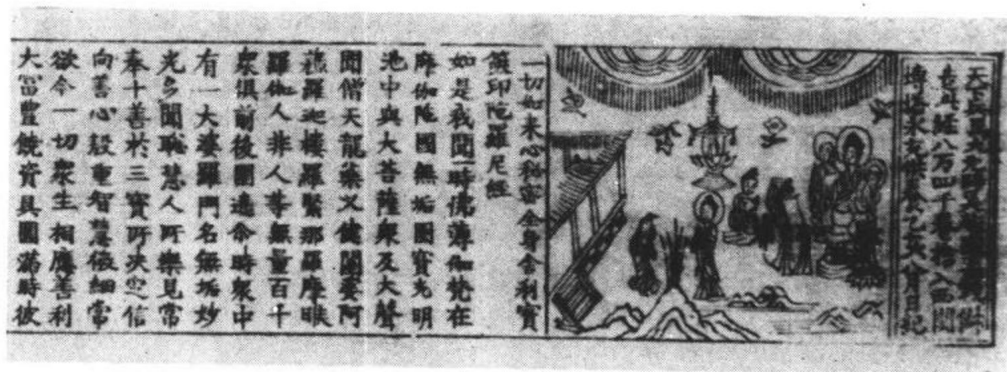 天下兵馬大元帥吳越國王錢俶
造此經八万四千卷捨入西關
塼塔永充供養乙亥八月日紀
一切如來心秘密全身舍利寶
篋印陀羅尼經
如是我聞一時佛薄伽梵在
摩伽陀國無垢園寶光明
池中與大菩薩衆及大聲
聞僧天龍藥叉健闥婆阿
蘓羅迦樓羅緊那羅摩睺
羅伽人非人等無量百千
衆俱前後圍遶尒時衆中
有一大婆羅門名無垢妙
光多聞聰慧人所樂見常
奉十善於三寶所決定信
向善心殷重智慧微細常
欲令一切衆生相應善利
大富豐饒資具圓滿時彼